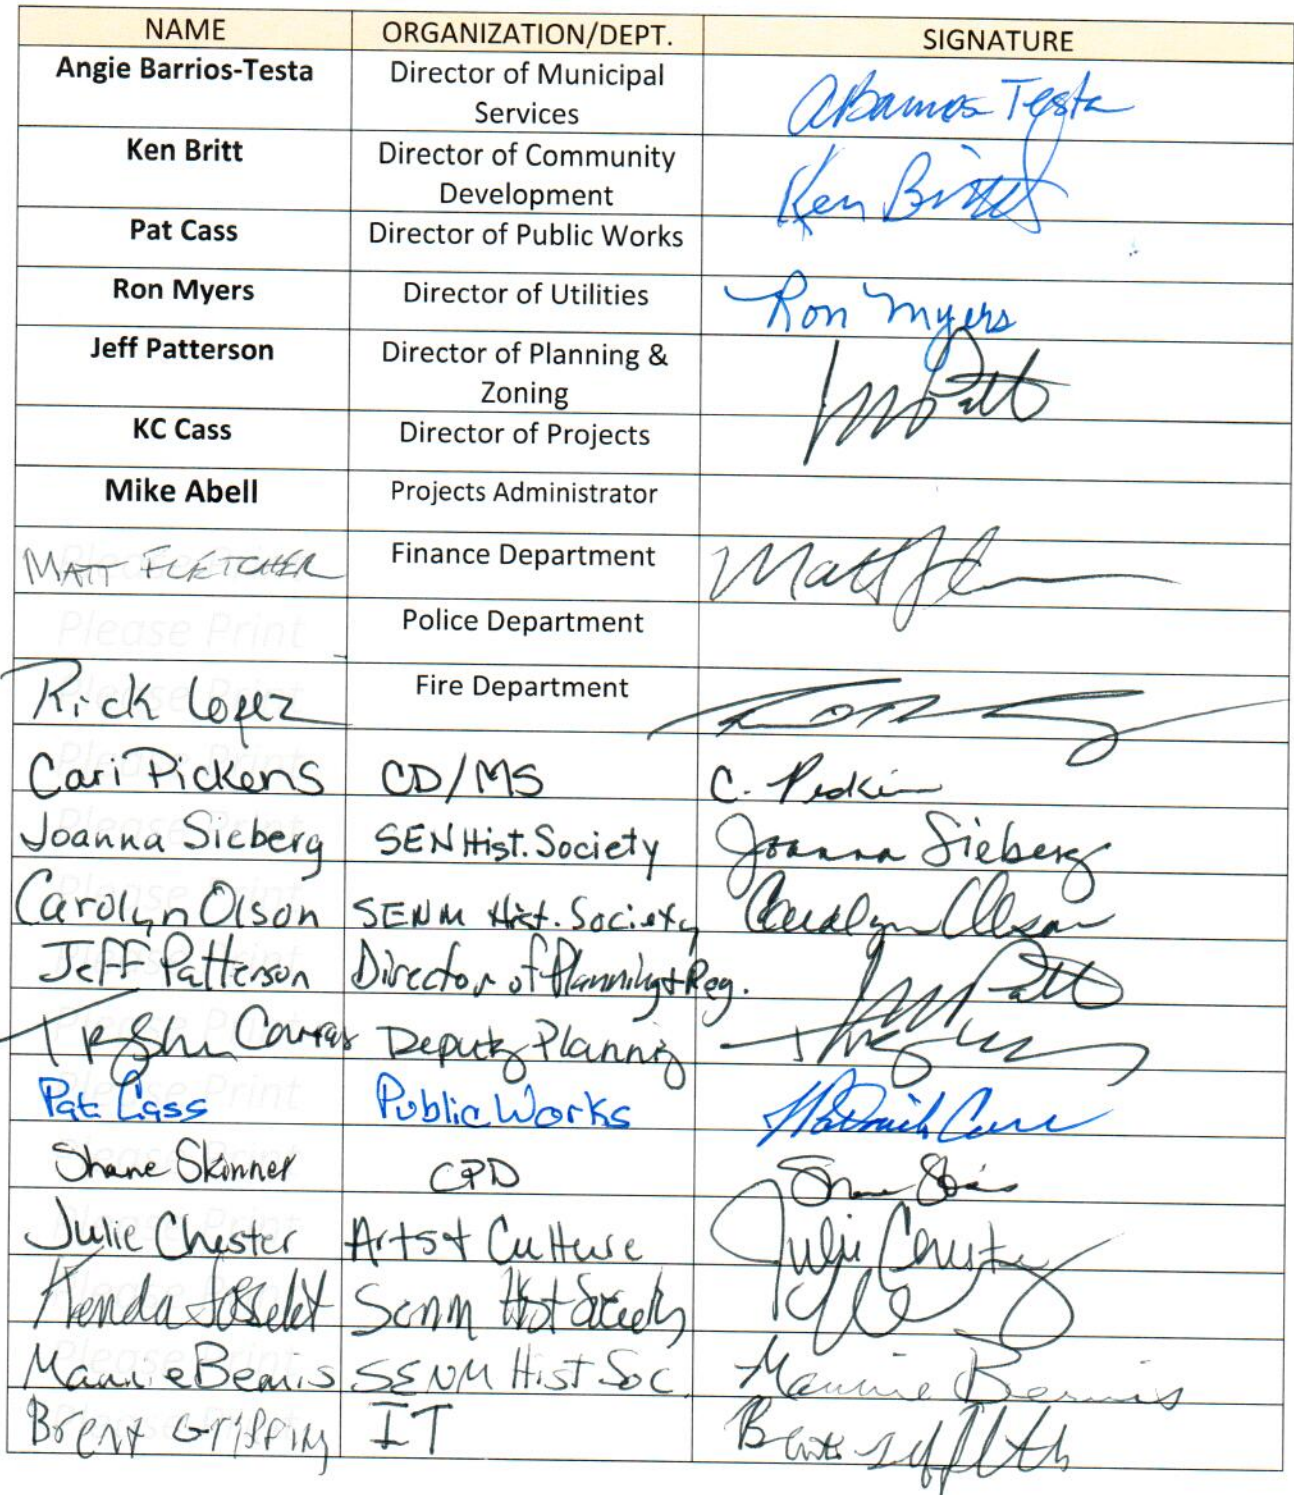 NAME ORGANIZATION/DEPT. SIGNATURE
Angie Barrios-Testa Director of Municipal Services ABarrios Testa
Ken Britt Director of Community Development Ken Britt
Pat Cass Director of Public Works
Ron Myers Director of Utilities Ron Myers
Jeff Patterson Director of Planning & Zoning
KC Cass Director of Projects
Mike Abell Projects Administrator
MATT FLETCHER Finance Department Matt
Please Print Police Department
Rick Lopez Fire Department
Cari Pickens CD/MS C.
Joanna Sieberg SEN Hist. Society Joanna Sieberg
Carolyn Olson SENM Hist. Society Carolyn Olson
Jeff Patterson Director of Planning + Reg.
Deputy Planning
Pat Cass Public Works
Shane Skinner CPD
Julie Chester Arts + Culture Julie Chester
Kenda Senm Hist Society
Bemis SENM Hist Soc. Bemis
Brent IT